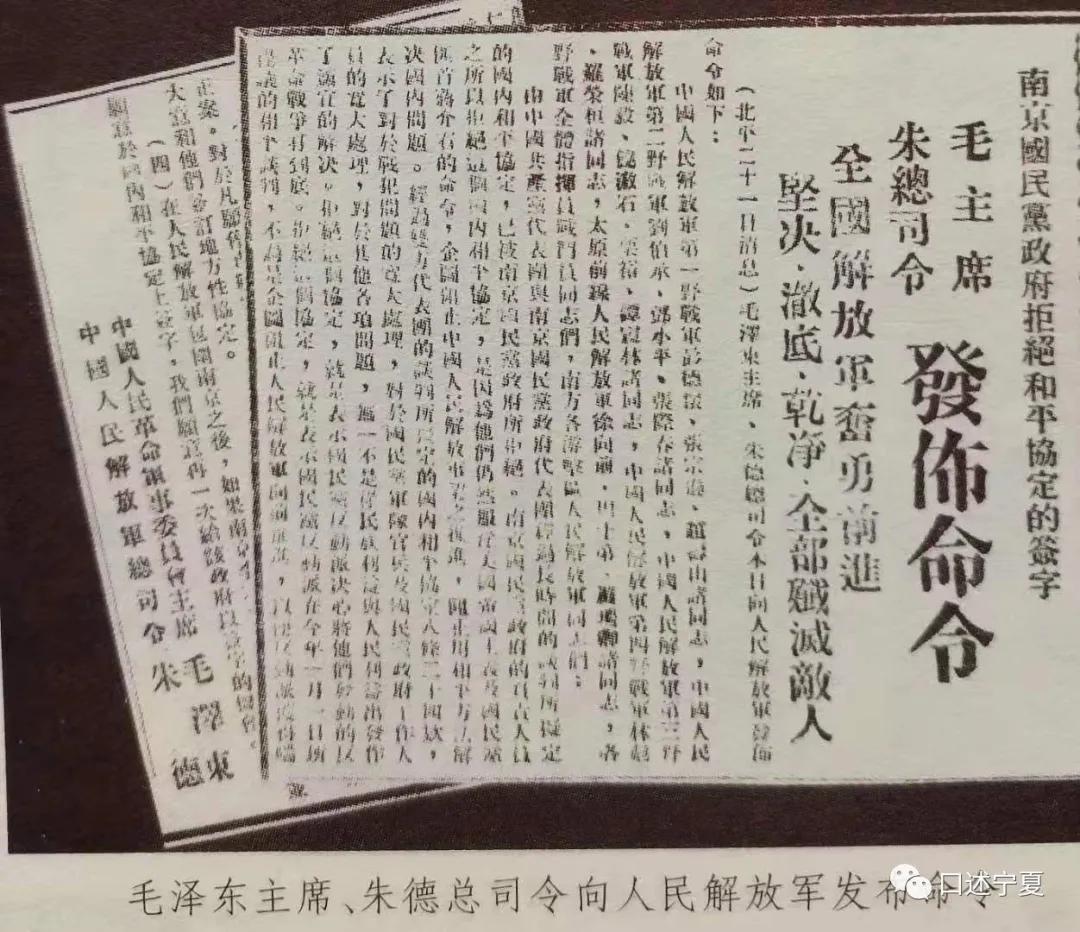 南京國民黨政府拒絕和平協定的簽字
毛主席
朱總司令
發佈命令
全國解放軍奮勇前進
堅决·澈底·乾净·全部殲滅敵人
(北平二十一日消息)毛澤東主席、朱德總司令本日向人民解放軍發佈
命令如下:
中國人民解放軍第一野戰軍彭德懷、張宗遜、趙壽山諸同志,中國人民
解放軍第二野戰軍劉伯承、鄧小平、張際春諸同志,中國人民解放軍第三野
戰軍陳毅、饒漱石、粟裕、譚震林諸同志,中國人民解放軍第四野戰軍林彪
、羅榮桓諸同志,太原前線人民解放軍徐向前、周士第、羅瑞卿諸同志,各
野戰軍全體指揮員戰鬥員同志們,南方各游擊區人民解放軍同志們:
由中國共產黨代表團與南京國民黨政府代表團經過長時間的談判所擬定
的國內和平協定,已被南京國民黨政府所拒絕。南京國民黨政府的負責人員
之所以拒絕這個國內和平協定,是因爲他們仍然服從美國帝國主義及國民黨
匪首蔣介石的命令,企圖阻止中國人民解放事業之推進,阻止用和平方法解
决國內問題。經過雙方代表團的談判所擬定的國內和平協定八條二十四款,
表示了對於戰犯問題的寬大處理,對於國民黨軍隊官兵及國民黨政府工作人
員的寬大處理,對於其他各項問題,無一不是從民族利益與人民利益出發作
了適宜的解决。拒絕這個協定,就是表示國民黨反動派决心將他們發動的反
革命戰爭打到底。拒絕這個協定,就是表示國民黨反動派在今年一月一日所
提議的和平談判,不過是企圖阻止人民解放軍向前推進,以便反動派獲得喘
正案。對於凡願
大意和他們簽訂地方性協定。
(四)在人民解放軍包圍南京之後,如果南京
願意於國內和平協定上簽字,我們願意再一次給該政府以簽字的機會。
中國人民革命軍事委員會主席 毛澤東
中國人民解放軍總司令 朱德
毛泽东主席、朱德总司令向人民解放军发布命令
口述宁夏